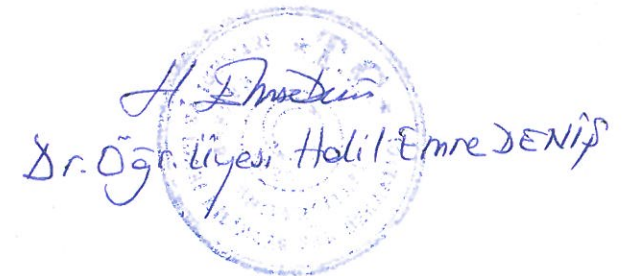 H. EmreDeniş
Dr. Öğr. Üyesi Halil Emre DENİŞ
T.C.